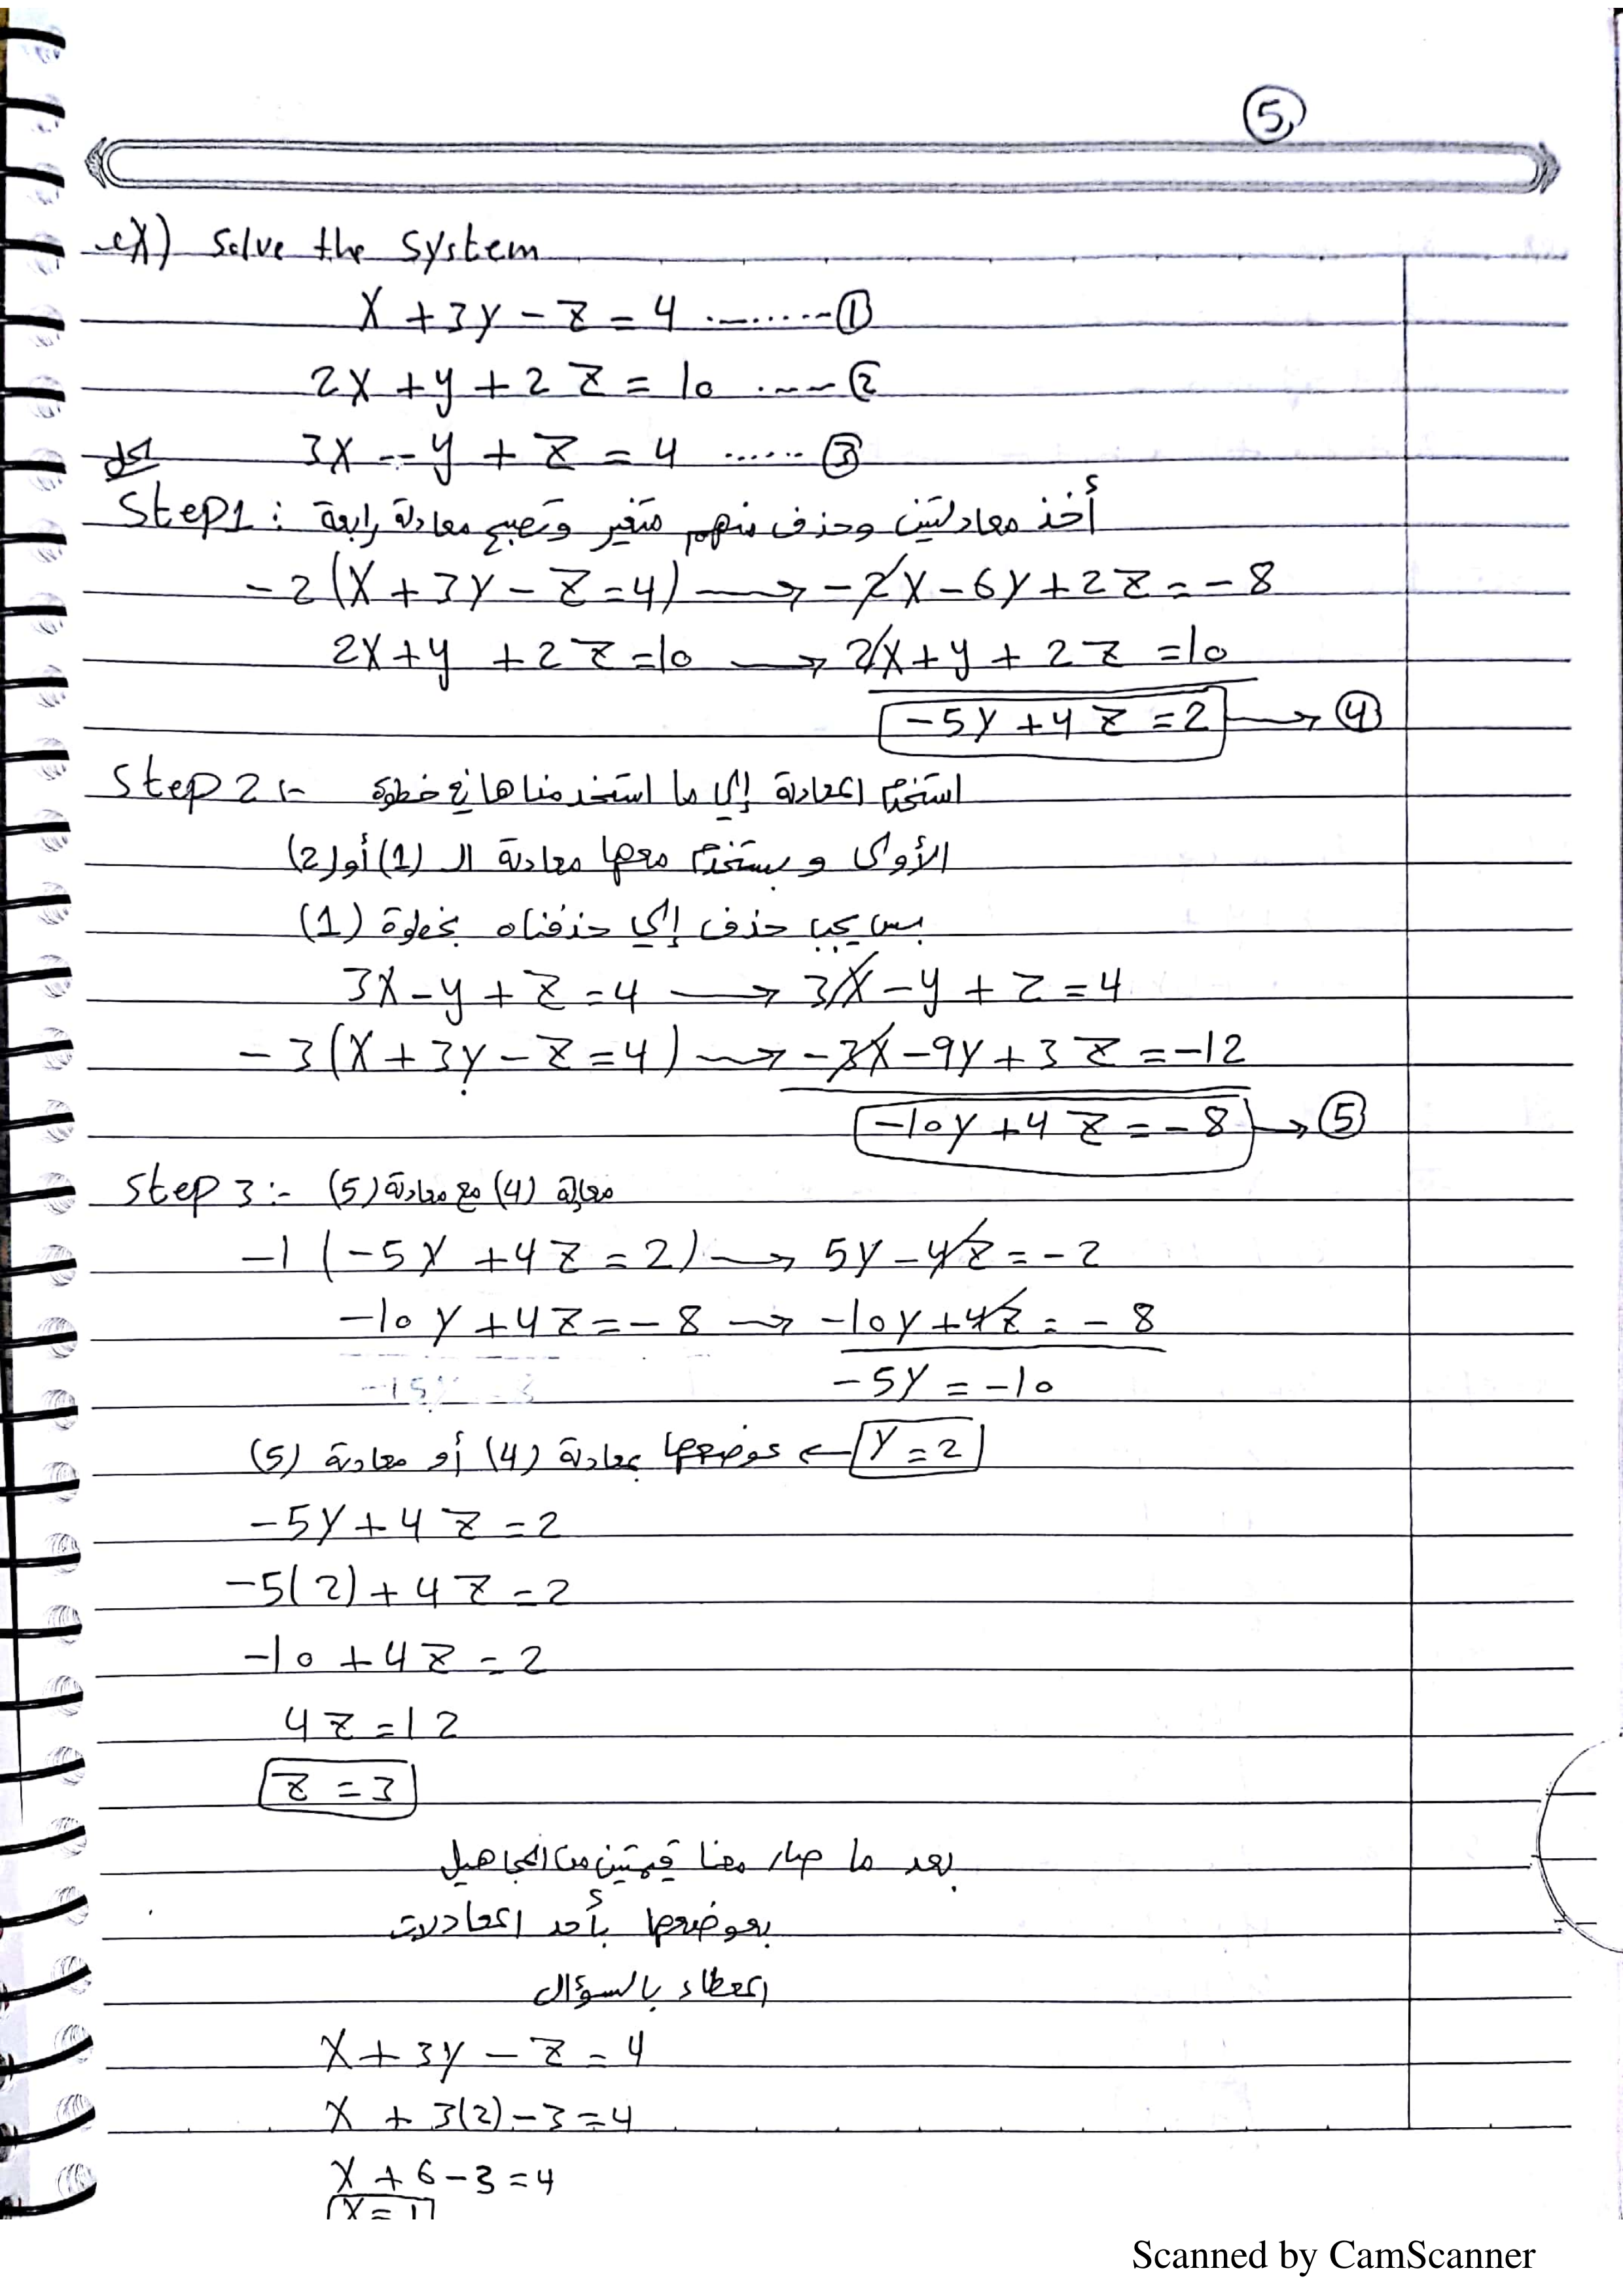 5
ex) Solve the system
x + 3y - z = 4 ......... ①
2x + y + 2z = 10 ...... ②
الحل 3x - y + z = 4 ...... ③
Step1: أخذ معادلتين وحذف منهم متغير وتصبح معادلة رابعة
-2(x + 3y - z = 4) → -2x - 6y + 2z = -8
2x + y + 2z = 10 → 2x + y + 2z = 10
-5y + 4z = 2 → ④
Step 2:- استخدم المعادلة إلي ما استخدمناها في خطوة
الأولى و يستخدم معها معادلة الـ (1) أو (2)
بس يجب حذف إلي حذفناه بخطوة (1)
3x - y + z = 4 → 3x - y + z = 4
-3(x + 3y - z = 4) → -3x - 9y + 3z = -12
-10y + 4z = -8 → ⑤
Step 3:- معادلة (4) مع معادلة (5)
-1(-5y + 4z = 2) → 5y - 4z = -2
-10y + 4z = -8 → -10y + 4z = -8
-5y = -10
y = 2 ← عوضها بمعادلة (4) أو معادلة (5)
-5y + 4z = 2
-5(2) + 4z = 2
-10 + 4z = 2
4z = 12
z = 3
بعد ما صار معنا قيمتين من المجاهيل
بعوضها بأحد المعادلات
المعطاء بالسؤال
x + 3y - z = 4
x + 3(2) - 3 = 4
x + 6 - 3 = 4
x = 1
Scanned by CamScanner